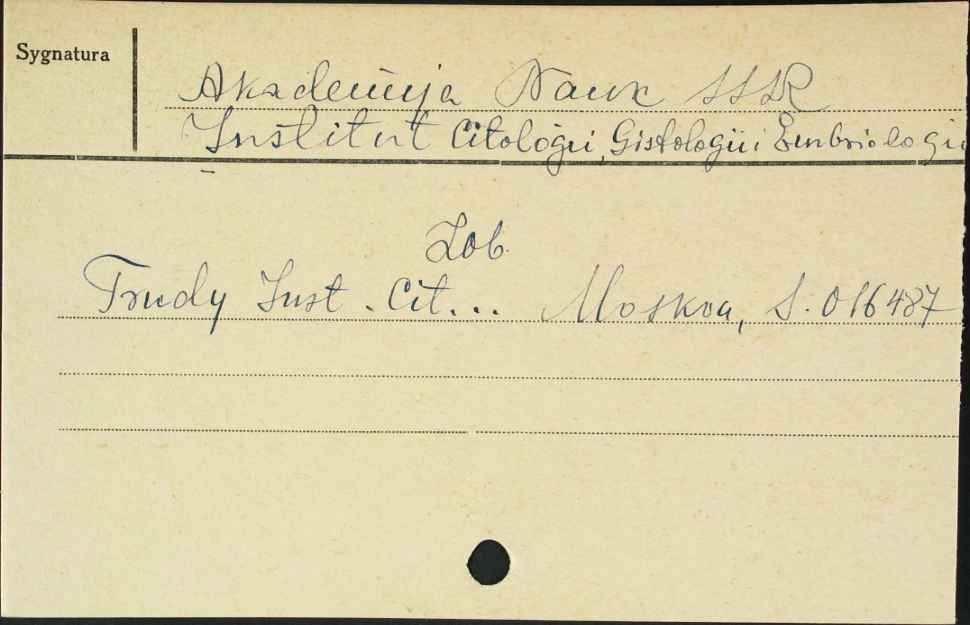 Sygnatura
Akademija Nauk SSSR
Institut Citologii, Gistologii i Embriologii
Zob.
Trudy Inst. Cit... Moskva, S. 016487